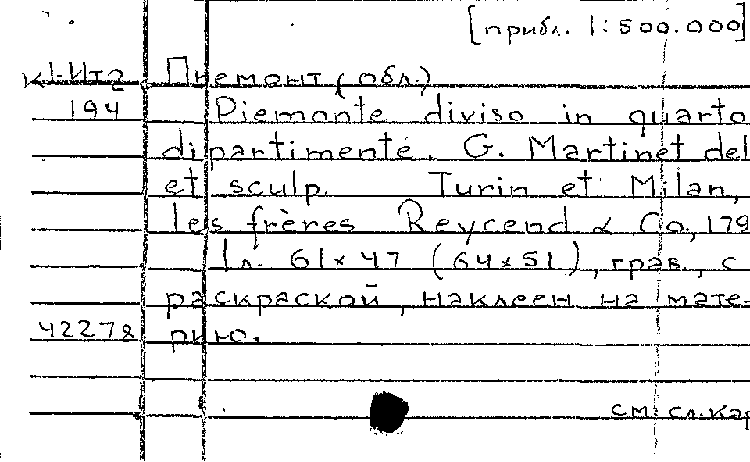 [прибл. 1:500.000]
К1-Ит2 Пиемонт (обл.)
194 Piemonte diviso in quarto
dipartimente. G. Martinet del
et sculp. Turin et Milan,
les frères Reycend & Co, 179
1 л. 61×47 (64×51), грав., с
раскраской, наклеен на мате-
42278 рию.
см. сл. кар